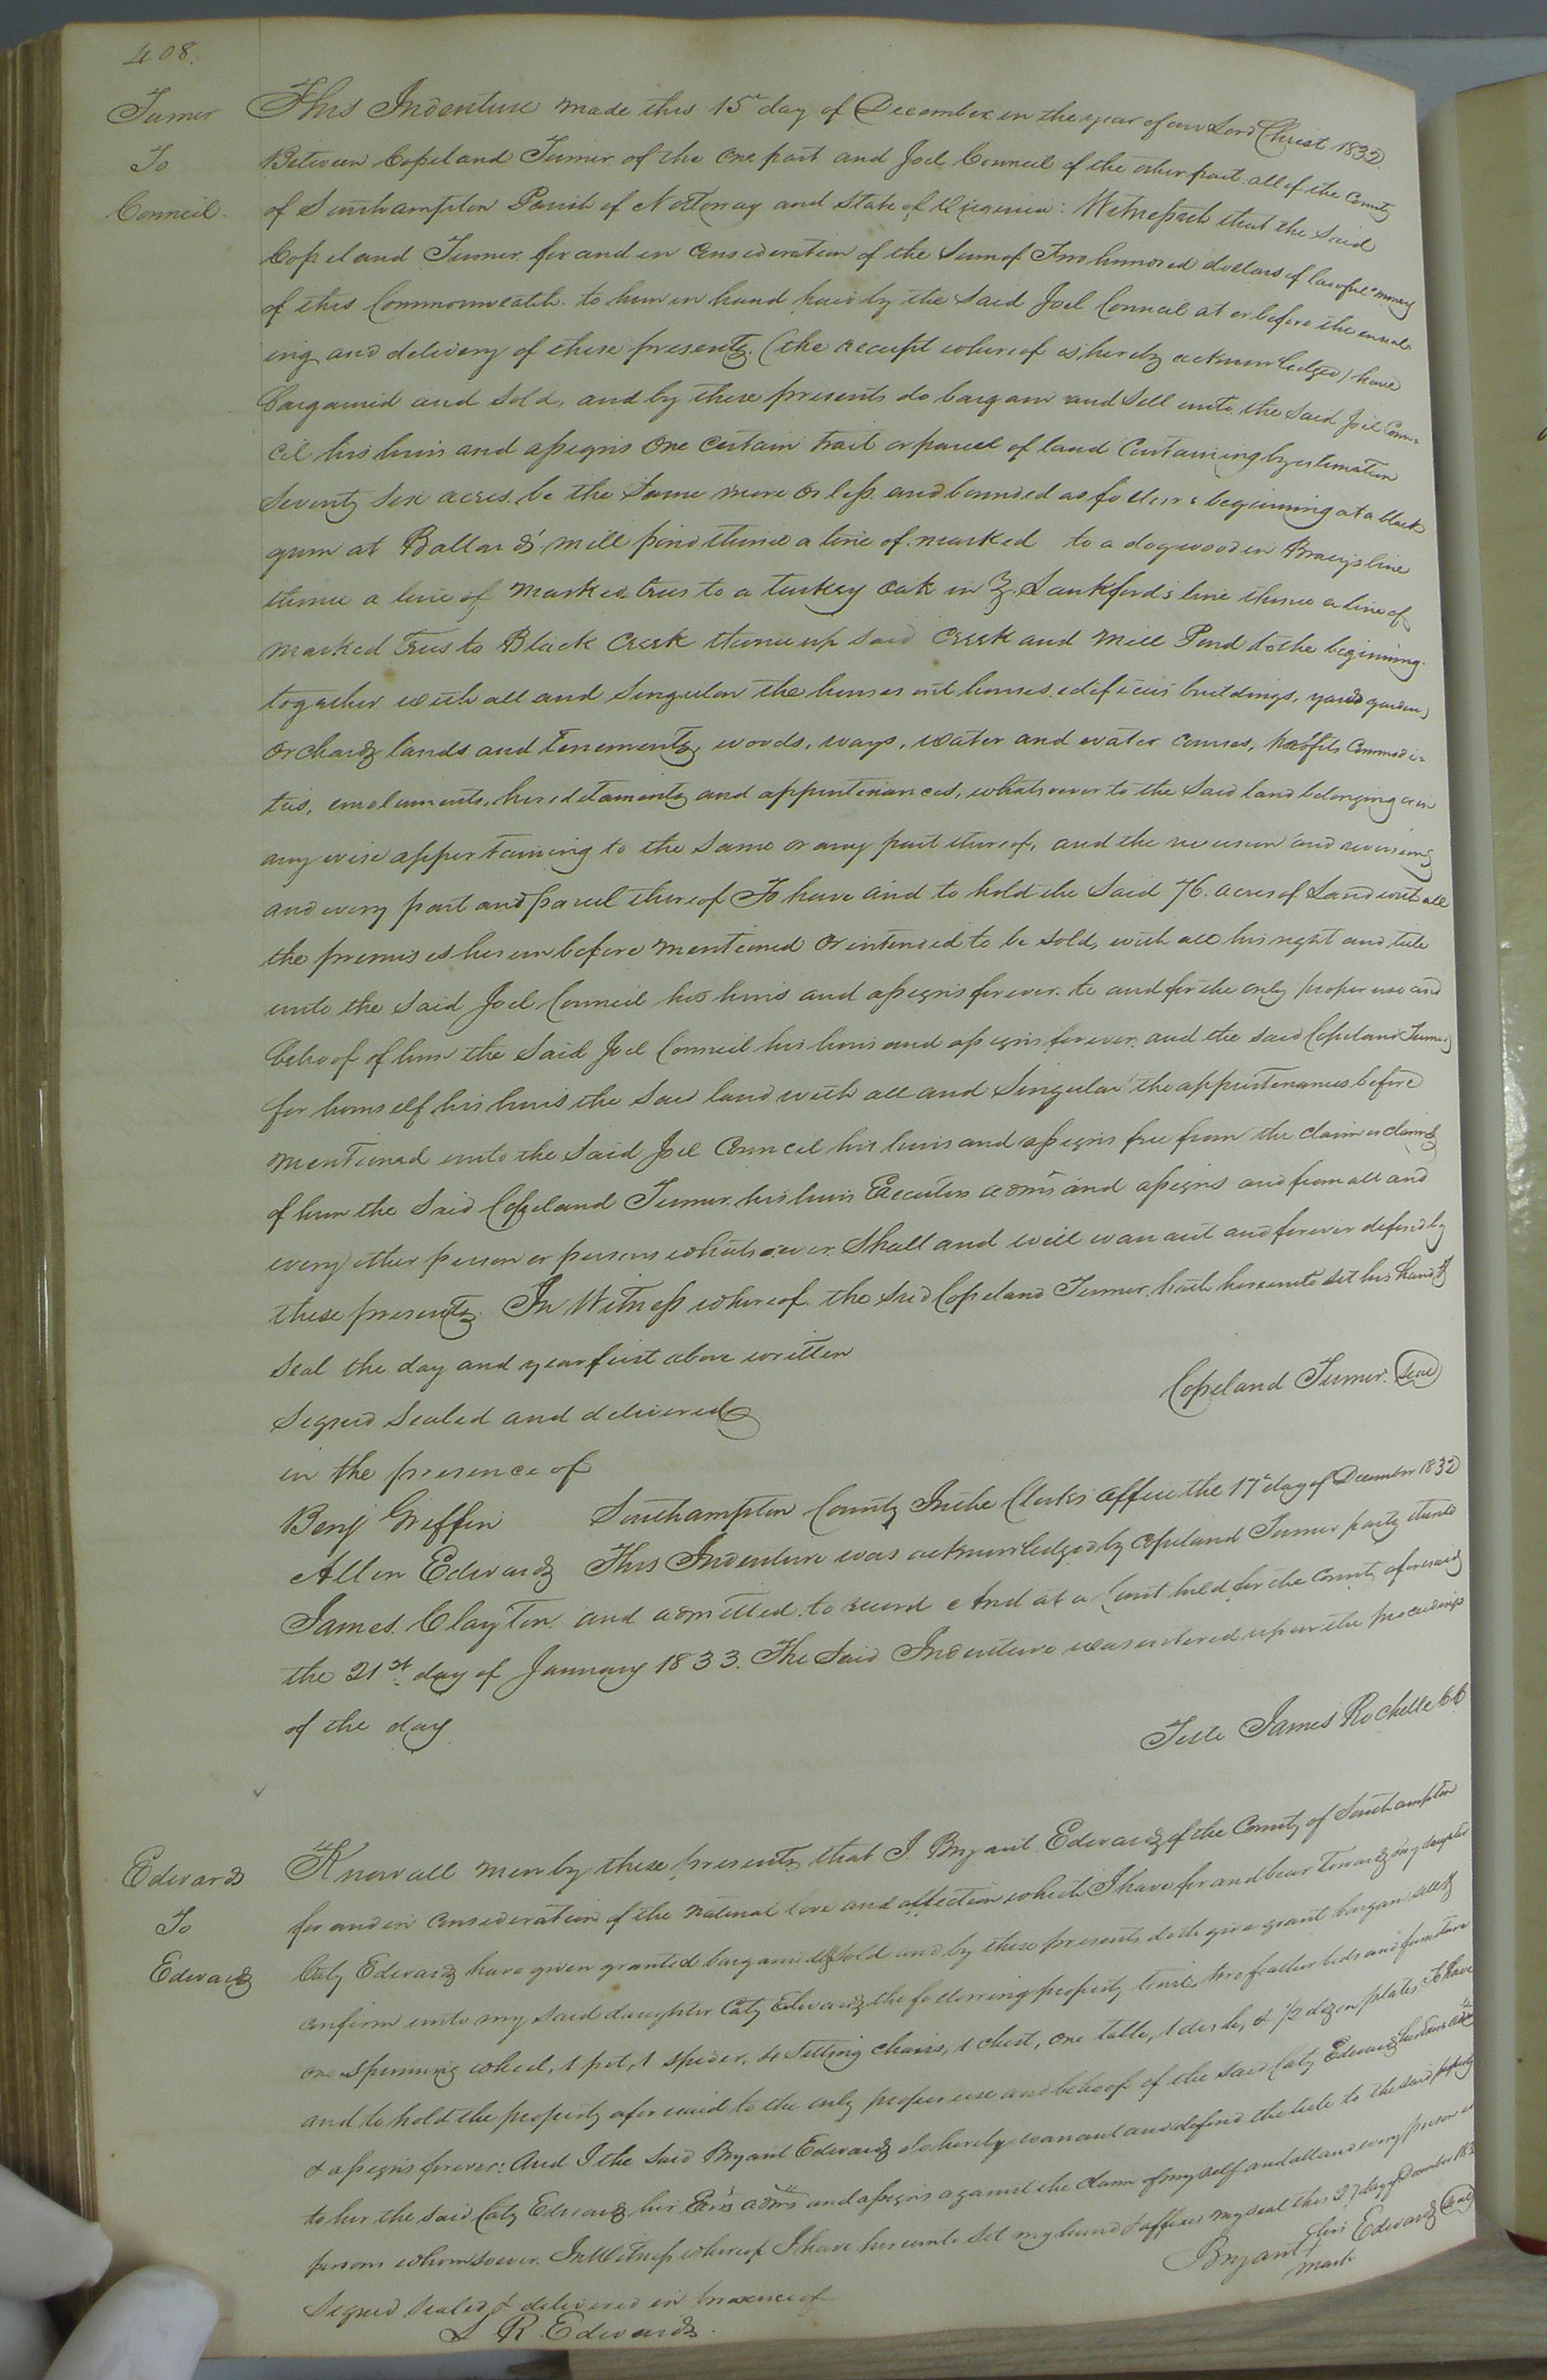 408.
Turner
To
Council.
This Indenture made this 15th day of December in the year of our Lord Christ 1832.
Between Copeland Turner of the one part and Joel Council of the other part all of the County
of Southampton Parish of Nottoway and State of Virginia: Witnesseth that the Said
Copeland Turner for and in Consideration of the Sum of Two hundred dollars of lawful money
of this Commonwealth to him in hand paid by the Said Joel Council at or before the enseal-
ing and delivery of these presents (the receipt whereof is hereby acknowledged) have
bargained and Sold, and by these presents do bargain and Sell unto the Said Joel Coun-
cil his heirs and assigns One certain tract or parcel of land Containing by estimation
Seventy Six acres be the Same more or less and bounded as follows beginning at a black
gum at Ballard's mill pond thence a line of marked to a dogwood in line
thence a line of marked trees to a turkey oak in Z. Lankford's line thence a line of
marked Trees to Black Creek thence up said Creek and Mill Pond to the beginning.
together with all and Singular the houses out houses edifices buildings, yards gardens,
Orchards lands and tenements, woods, ways, water and water courses, profits Commodi-
ties, emoluments, hereditaments and appurtenances, whatsoever to the Said land belonging or in
any wise appertaining to the Same or any part thereof, and the reversion and reversions
and every part and parcel thereof To have and to hold the Said 76. acres of Land with all
the premises herein before mentioned or intended to be Sold, with all his right and title
unto the Said Joel Council his heirs and assigns forever. to and for the only proper use and
behoof of him the Said Joel Council his heirs and assigns forever. and the said Copeland Turner
for himself his heirs the Said land with all and Singular the appurtenances before
mentioned unto the Said Joel Council his heirs and assigns free from the claim or claims
of him the Said Copeland Turner his heirs Executors adm.rs and assigns and from all and
every other person or persons whatsoever Shall and will warrant and forever defend by
these presents. In Witness whereof the Said Copeland Turner hath hereunto set his hand &
Seal the day and year first above written
Copeland Turner. Seal
Signed Sealed and delivered
in the presence of
Benj Griffin
Allen Edwards
James Clayton
Southampton County In the Clerks office the 17th day of December 1832
This Indenture was acknowledged by Copeland Turner party thereto
and admitted to record And at a Court held for the County aforesaid
the 21st day of January 1833. The Said Indenture was entered upon the proceedings
of the day
Teste James Rochelle CC
Edwards
To
Edwards
Know all men by these presents that I Bryant Edwards of the County of Southampton
for and in Consideration of the natural love and affection which I have for and bear Towards my daughter
Caty Edwards have given granted bargained & Sold and by these presents doth give grant bargain sell &
confirm unto my said daughter Caty Edwards the following property two feather beds and furniture
one Spinning wheel, 1 pot, 1 Spider, 4 Sitting chairs, 1 chest, one table, 1 desk, & 1/2 dozen plates To have
and to hold the property aforesaid to the only proper use and behoof of the said Caty Edwards
& assigns forever: And I the Said Bryant Edwards do hereby warrant and defend the title to the said property
to her the said Caty Edwards her Ex.rs adm.rs and assigns against the claim of myself and all and every person or
persons whomsoever. In Witness whereof I have hereunto Set my hand & affixed my seal this 27 day of December 183
Bryant his + mark Edwards Seal
Signed Sealed & delivered in presence of
R. Edwards.